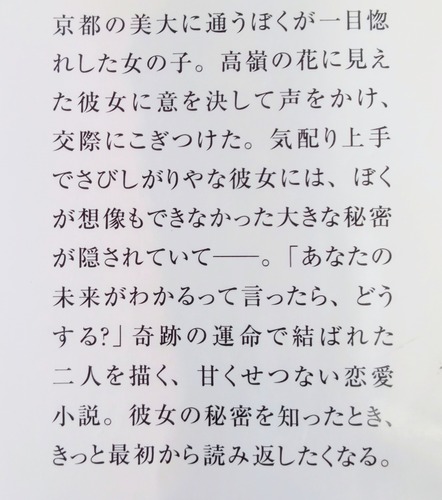 京都の美大に通うぼくが一目惚
れした女の子。高嶺の花に見え
た彼女に意を決して声をかけ、
交際にこぎつけた。気配り上手
でさびしがりやな彼女には、ぼく
が想像もできなかった大きな秘密
が隠されていて――。「あなたの
未来がわかるって言ったら、どう
する?」奇跡の運命で結ばれた
二人を描く、甘くせつない恋愛
小説。彼女の秘密を知ったとき、
きっと最初から読み返したくなる。